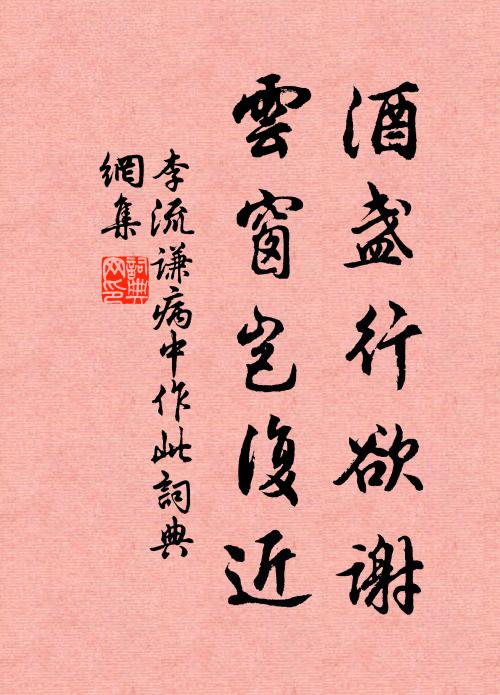 酒盞行欲謝
雲窗豈復近
李流謙病中作此詞典
網集
詞典網印